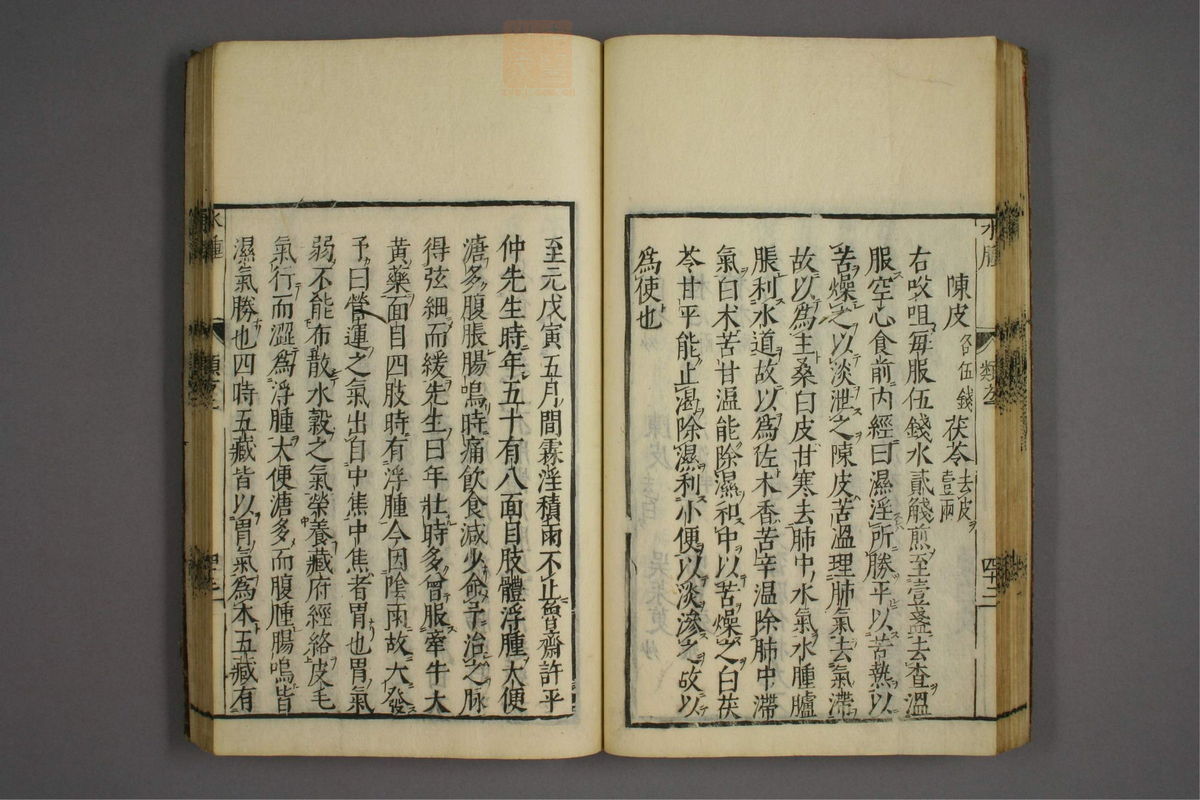 陳皮各伍錢 茯苓去皮壹兩
右㕮咀每服伍錢水貳觴煎至壹盞去查溫
服空心食前內經曰濕淫所勝平以苦熱以
苦燥之以淡泄之陳皮苦溫理肺氣去氣滯
故以爲主桑白皮甘寒去肺中水氣水腫臚
脹利水道故以爲佐木香苦辛溫除肺中滯
氣白朮苦甘溫能除濕和中以苦燥之白茯
苓甘平能止渴除濕利小便以淡滲之故以
爲使也
至元戊寅五月間霖淫積雨不止魯齋許平
仲先生時年五十有八面目肢體浮腫大便
溏多腹脹腸鳴時痛飲食減少命予治之脉
得弦細而緩先生曰年壯時多曾服牽牛大
黃藥面目四肢時有浮腫今因陰雨故大發
予曰營運之氣出自中焦中焦者胃也胃氣
弱不能布散水穀之氣榮養藏府經絡皮毛
氣行而澀爲浮腫大便溏多而腹腫腸鳴皆
濕氣勝也四時五藏皆以胃氣爲本五藏有